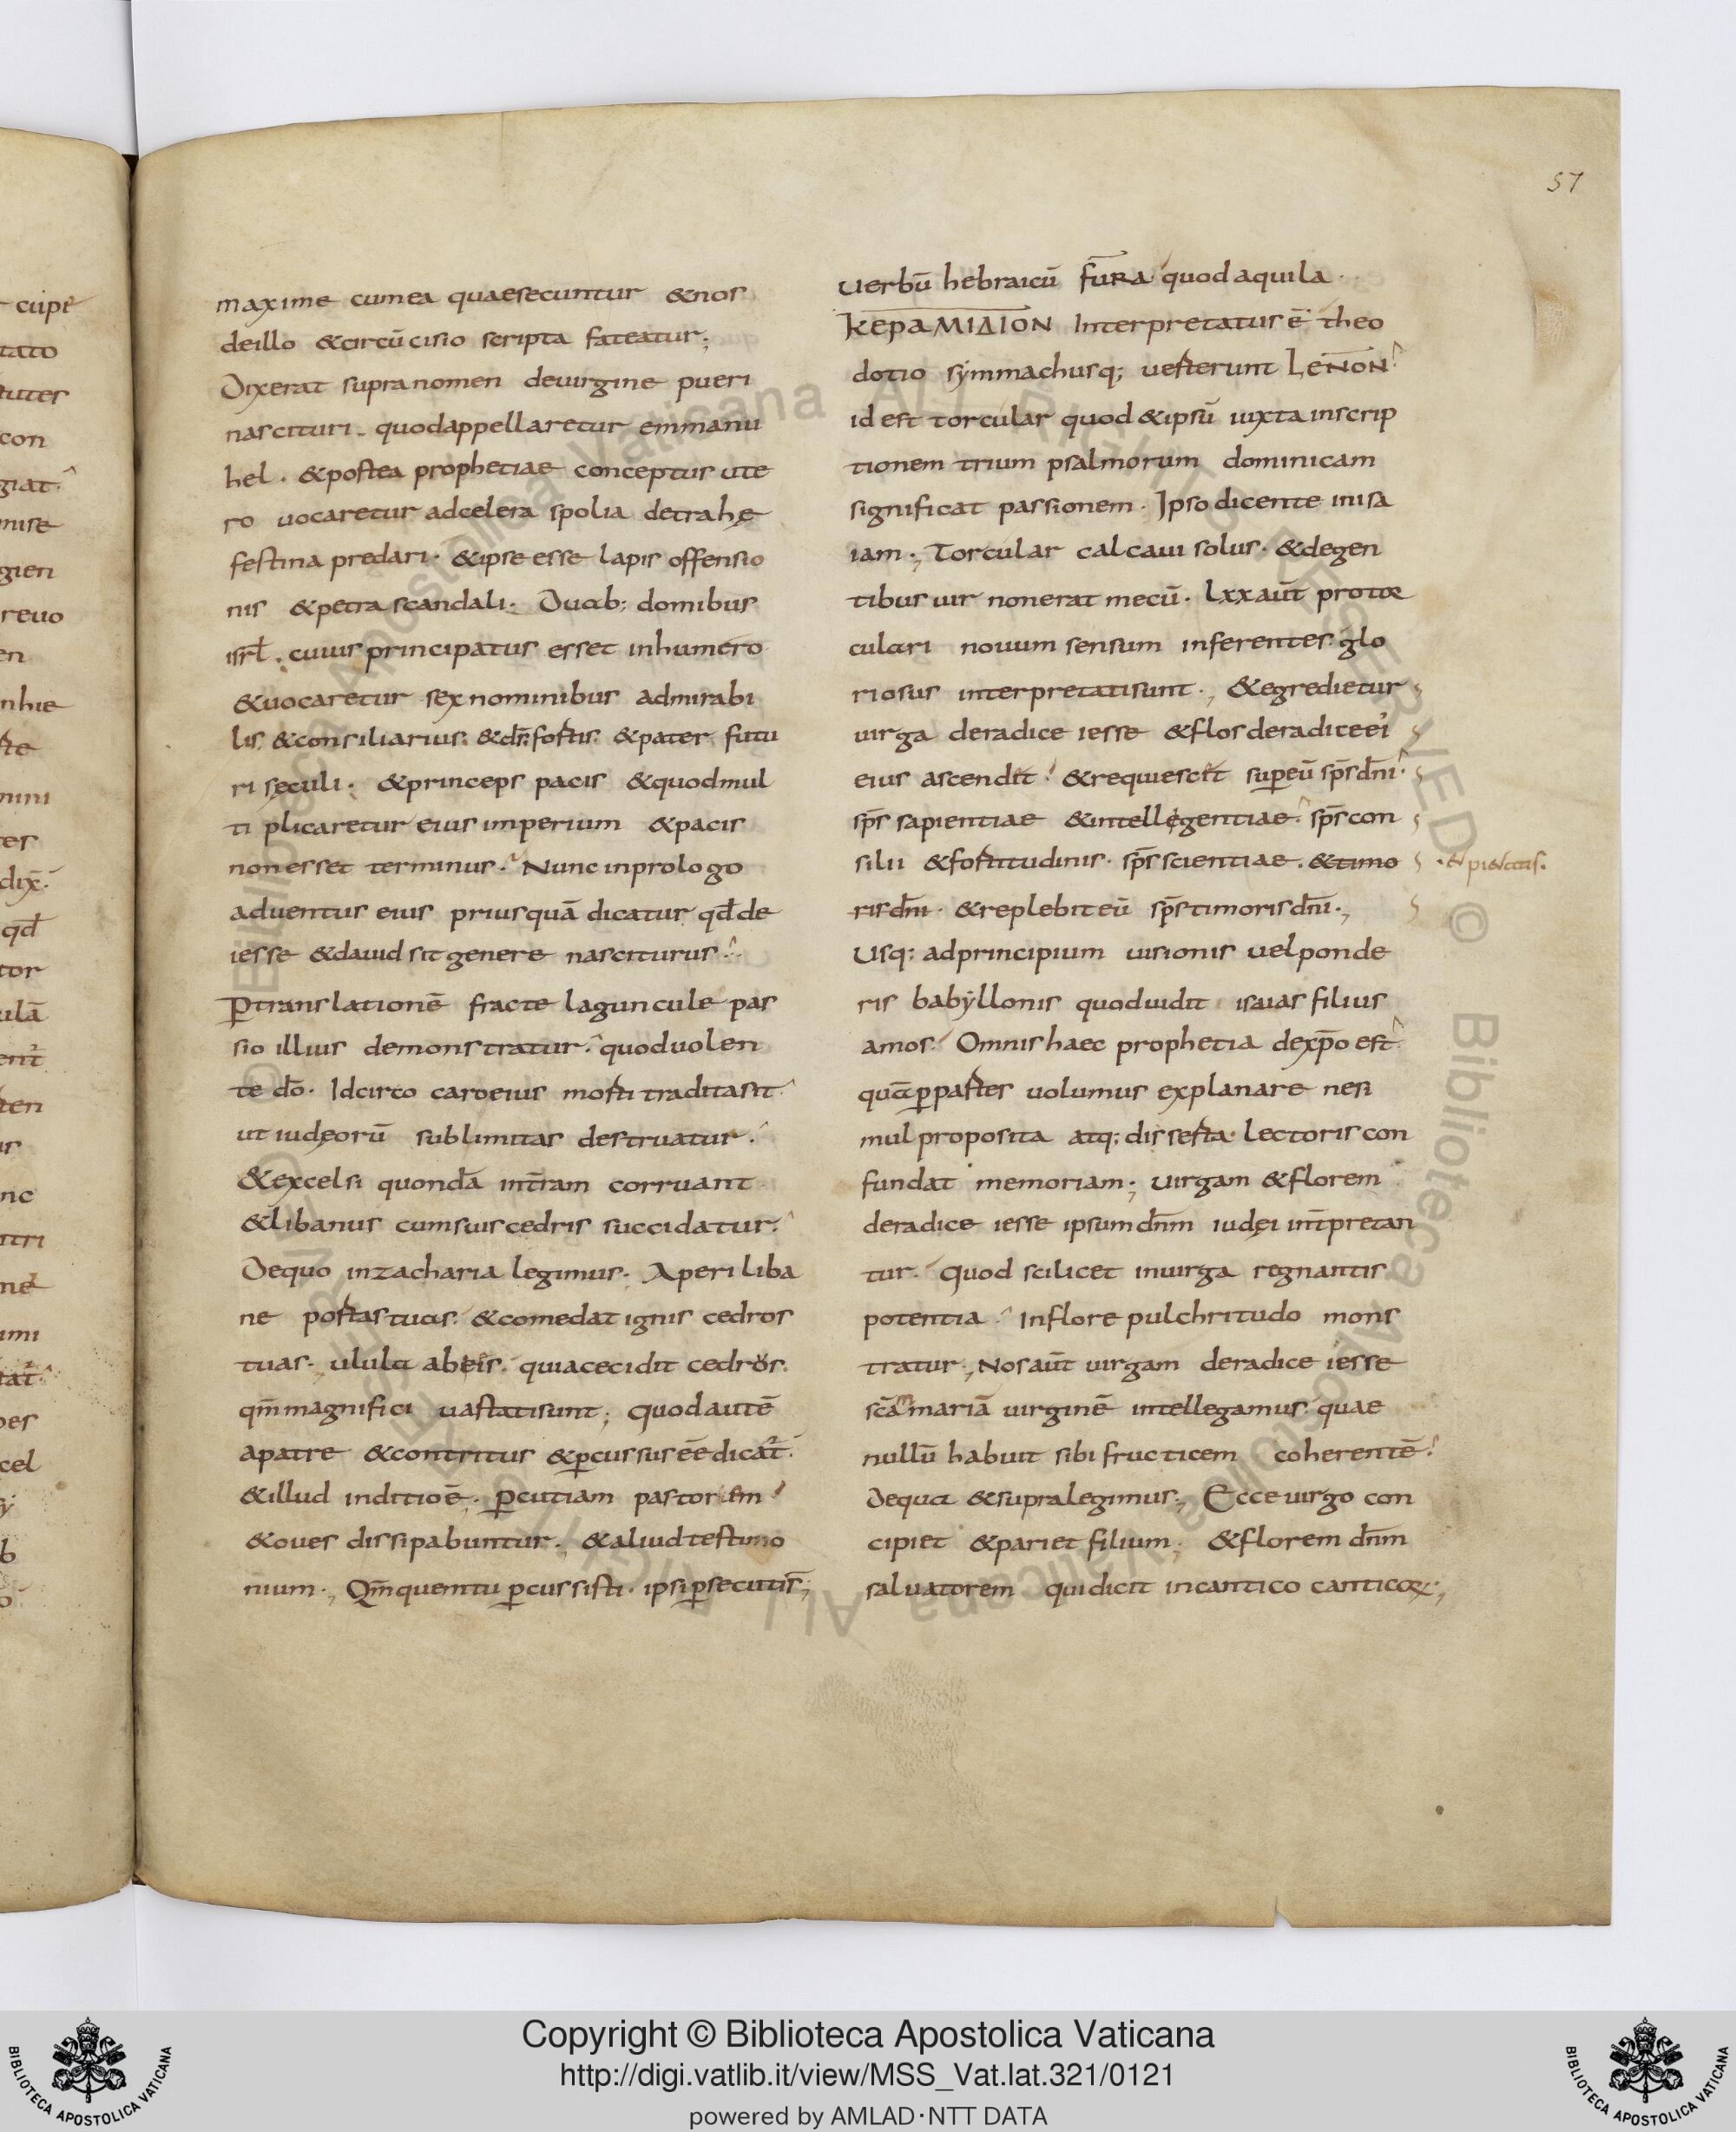 57
maxime cumea quaesecuntur &nos
deillo &circūcisio scripta fateatur;
Dixerat supranomen deuirgine pueri
nascituri. quodappellaretur emmanu
hel. &postea prophetiae conceptus ute
ro uocaretur adcelera spolia detrahe
festina predari. &ipse esse lapis offensio
nis &petra scandali. Duab; domibus
isrł. cuius principatus esset inhumero
&uocaretur sex nominibus admirabi
lis. &consiliarius. &ds̄. fortis. &pater futu
ri sęculi. &princeps pacis &quodmul
ti plicaretur eius imperium &pacis
non esset terminus. Nunc inprologo
aduentus eius priusquā dicatur qđ de
iesse &dauid sit genere nasciturus.
Ꝑtranslationē fracte laguncule pas
sio illius demonstratur. quoduolen
te dō. Idcirco caro eius morti tradita sit
ut iudęorū sublimitas destruatur.
&excelsi quondā int̄ram corruant
&libanus cumsuis cedris succidatur.
Dequo inzacharia legimus. Aperi liba
ne portas tuas. &comedat ignis cedros
tuas. ulula abeis. quiacecidit cedrus.
qm̄ magnifici uastati sunt; Quodautē
apatre &contritus &ꝑcussus eē dicat̄.
&illud inditioē. Ꝑcutiam pastorem
&oues dissipabuntur. &aliud testimo
nium. Qm̄ quemtu ꝑcussisti. ipsi ꝑsecuti s̄;
uerbū hebraicū fūra. quodaquila.
KEPAMIΔION Interpretatus ē. theo
dotio symmachusq; uerterunt LENON.
id est torcular quod &ipsū iuxta inscrip
tionem trium psalmorum dominicam
significat passionem. Ipso dicente inisa
iam; Torcular calcaui solus. &degen
tibus uir nonerat mecū. Lxx aūt protor
culari nouum sensum inferentes. glo
riosus interpretati sunt; &egredietur
uirga deradice iesse &flos deradice ei
eius ascendit. &requiescit super eū sp̄s dn̄i.
sp̄s sapientiae &intellegentiae. sp̄s con
silii &fortitudinis. sp̄s scientiae. &timo
.&pietatis.
ris dn̄i. &replebit eū sp̄s timoris dn̄i.,
Usq; adprincipium uisionis uel ponde
ris babyllonis quoduidit isaias filius
amos. Omnis haec prophetia dexp̄o est
quā ꝑ partes uolumus explanare nesi
mul proposita atq; disserta. lectoris con
fundat memoriam; uirgam &florem
deradice iesse ipsum dn̄m iudęi int̄pretan
tur. Quod scilicet inuirga regnantis
potentia. Inflore pulchritudo mons
tratur; Nos aūt uirgam deradice iesse
sc̄am mariā uirginē intellegamus. quae
nullū habuit sibi fructicem coherentē.
Dequa &supra legimus; Ecce uirgo con
cipiet &pariet filium; &florem dn̄m
saluatorem qui dicit in cantico canticoꝝ;
Copyright © Biblioteca Apostolica Vaticana
http://digi.vatlib.it/view/MSS_Vat.lat.321/0121
powered by AMLAD·NTT DATA
BIBLIOTECA APOSTOLICA VATICANA
BIBLIOTECA APOSTOLICA VATICANA